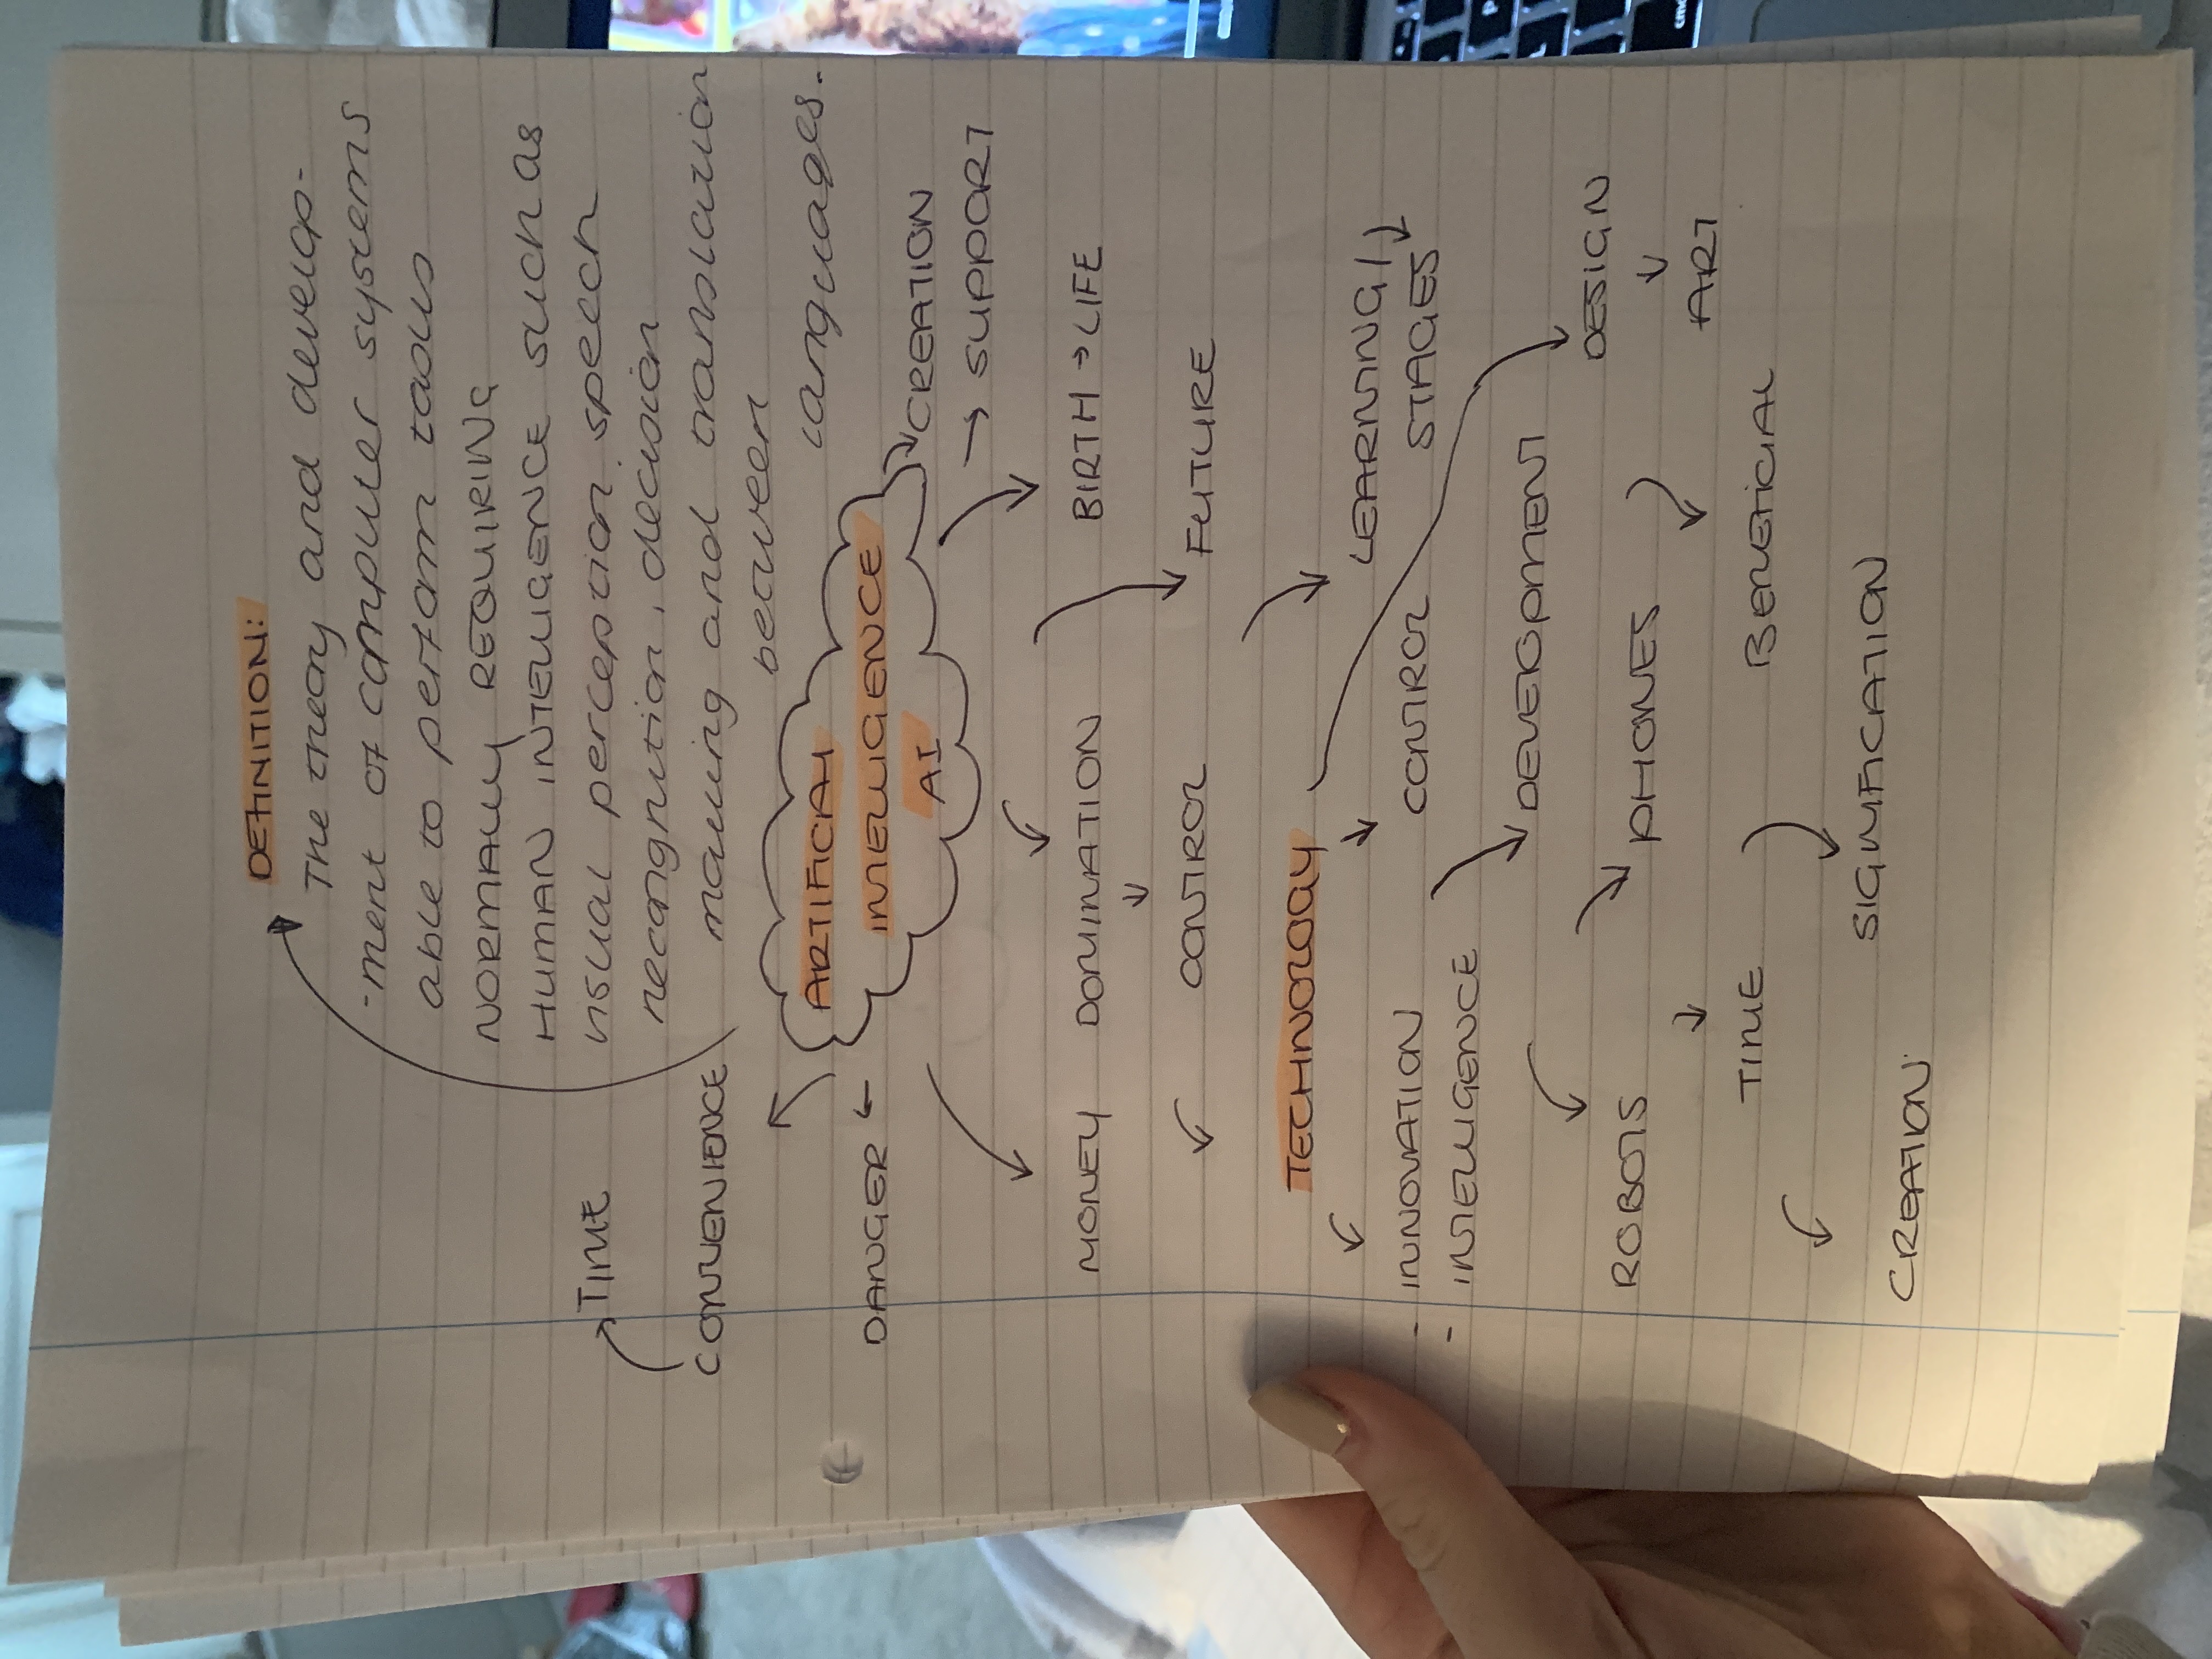 DEFINITION:
The theory and develop-
-ment of computer systems
able to perform tasks
NORMALLY REQUIRING
HUMAN INTELLIGENCE such as
visual perception, speech
recongnition, decision
making and translation
between
languages.
→ TIME
CONVENIENCE
ARTIFICAL
INTELLIGENCE
AI
DANGER ←
CREATION
→ SUPPORT
MONEY DOMINATION BIRTH → LIFE
CONTROL FUTURE
TECHNOLOGY
LEARNING
STAGES
- INNOVATION CONTROL
- INTELLIGENCE
DEVELOPMENT
DESIGN
ROBOTS PHONES
ART
TIME BENEFICIAL
SIGNIFICATION
CREATION